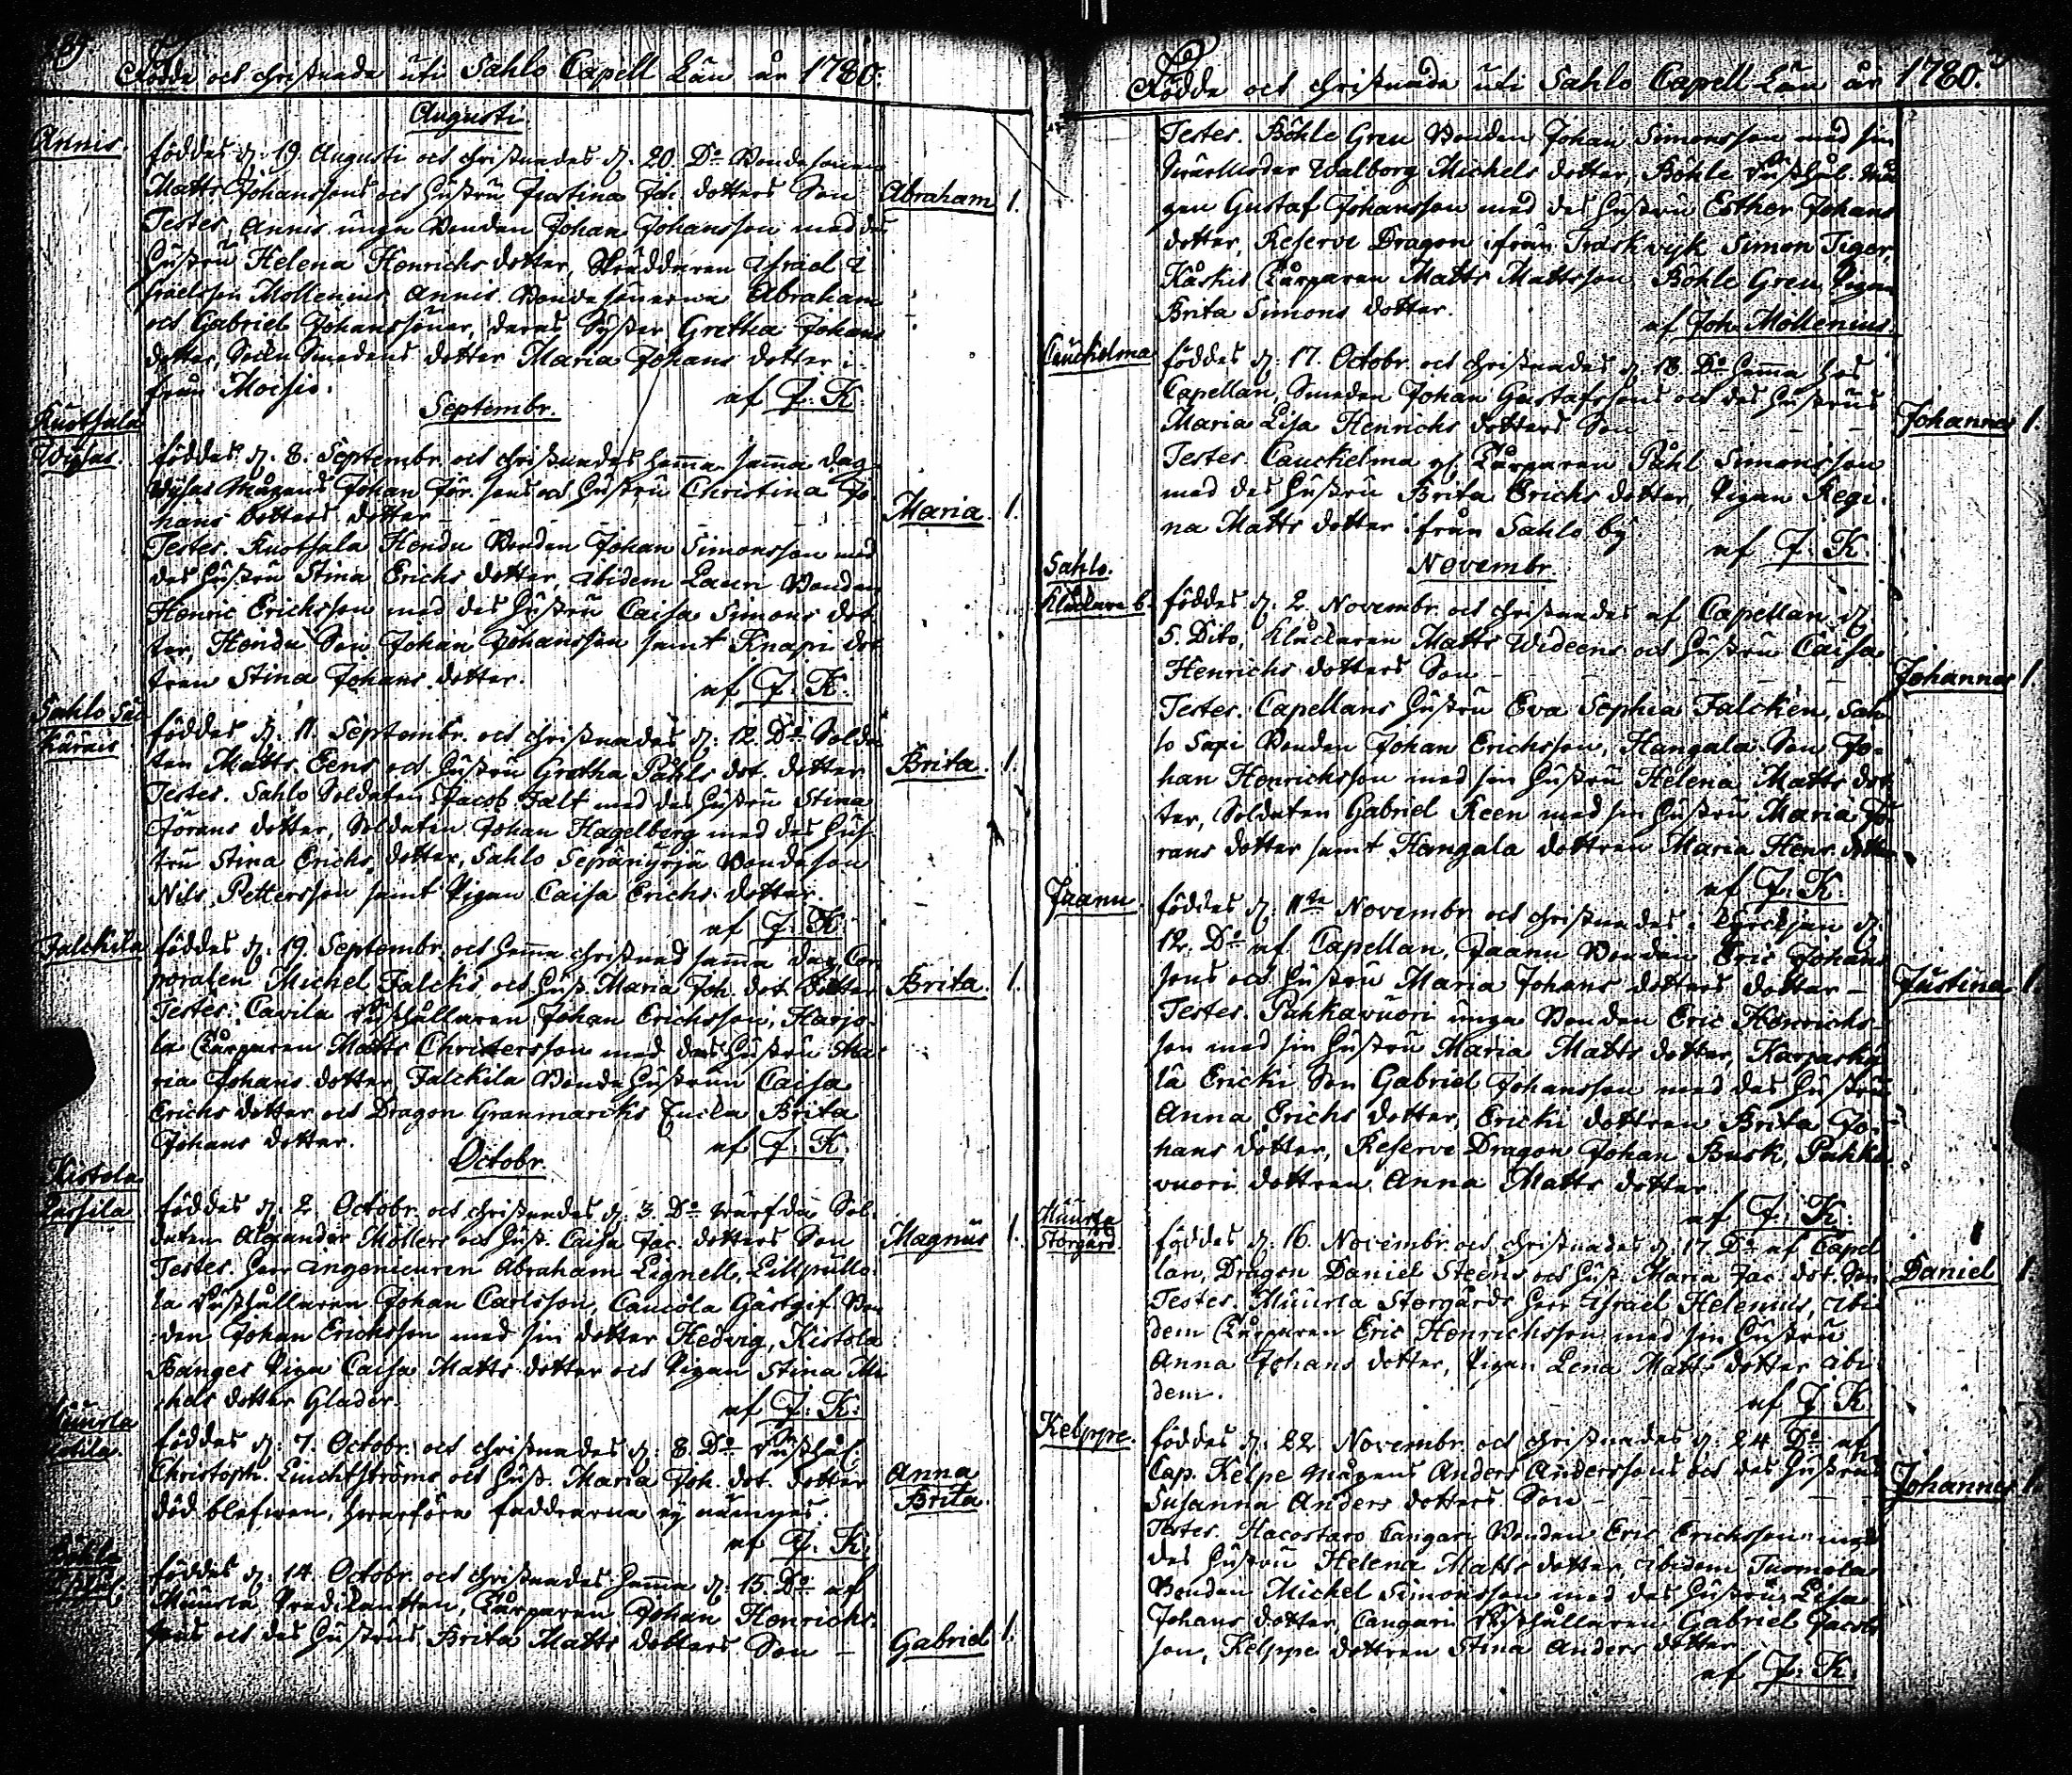 Födde och christnade uti Sahlo Capell Län år 1780.
Augusti
Annis.
föddes d: 19 Augusti och christnades d: 20. Do Bondesonen
Matts Johanssons och hustru Justina Joh. dotters Son
Abraham 1.
Testes, Annis unga Bonden Johan Johansson med des
hustru Helena Henrichs dotter, Skräddaren Israel I
sraelsson Mollenius Annis Bondesönerna Abraham
och Gabriel Johanssöner, deras Syster Gretha Johans
dotter, Smedens dotter Maria Johans dotter i
från Moisio.
af J: K:
Septembr.
Kuothala
föddes d: 8. Septembr. och christnades hema sama dag
Mågens Johan sons och hustru Christina Jo
hans dotters dotter
Maria. 1.
Testes. Kuothala Hendu Bonden Johan Simonsson med
des hustru Stina Erichs dotter, ibidem Lauri Bonden
Henric Erichsson med des hustru Caisa Simons dot
ter, Hendu Son Johan Johansson samt Knapi dot
tren Stina Johans dotter.
af J: K:
Sahlo
föddes d: 11. Septembr. och christnades d: 12. Do Solda
ten Matts Eens och hustru Gretha Påhls dot. dotter
Brita. 1.
Testes. Sahlo Soldaten Jacob Falt med des hustru Stina
Jörans dotter, Soldaten Johan Hagelberg med des hus
tru Stina Erichs dotter, Sahlo Bondeson
Nils Pettersson samt Pigan Caisa Erichs dotter.
af J: K:
Falckila
föddes d: 19. Septembr. och hema christnad sama dag Cor
poralen Michel Falcks och hust. Maria Joh. dot. dotter
Brita. 1.
Testes. Cavila Rusthållaren Johan Erichsson, Harjo
la Torparen Matts Christersson med des hustru Ma
ria Johans dotter, Falckila Bonde hustrun Caisa
Erichs dotter och Dragon Granmarcks Enckla Brita
Johans dotter.
af J: K:
Octobr.
Kistola
föddes d: 2. Octobr. och christnades d: 3. Do Sol
daten Alexander Möllers och hust. Caisa Jac. dotters Son
Magnus 1.
Testes. Herr Ingenieuren Abraham Lignell, Lillpullo
la Rusthållaren Johan Carlsson, Caucola Gästgif. Bon
den Johan Erichsson med sin dotter Hedvig, Kistola
Banges Piga Caisa Matts dotter och Pigan Stina Mi
chels dotter Glader.
af J: K:
Muurla
föddes d: 7. Octobr. och christnades d: 8. Do Rusthål.
Christoph. Liuchtströms och hust. Maria Joh. dot. dotter
Anna
Brita.
död blefwen, hwarföre faddrarna ej nämnes.
af J: K:
Böhle
föddes d: 14. Octobr. och christnades hema d: 15. Do af
Muurla Predikanten, Torparen Johan Henrichs
sons och des hustrus Brita Matts dotters Son
Gabriel 1.
Födde och christnade uti Sahlo Capell Län år 1780.
Testes. Böhle Greu Bonden Johan Simonsson med sin
Swärmoder Walborg Michels dotter, Böhle Rusthål. Må
gen Gustaf Johansson med des hustru Esther Johans
dotter, Reserve Dragon ifrån Träskvik Simon Tiger,
Torparen Matts Mattsson Böhle Greu Pigan
Brita Simons dotter.
af Joh. Mollenius.
Cauckelma
föddes d: 17. Octobr. och christnades d: 18. Do hema hos
Capellan, Smeden Johan Gustafssons och des hustrus
Maria Lisa Henrichs dotters Son
Johannes 1.
Testes. Cauckelma Torparen Påhl Simonsson
med des hustru Brita Erichs dotter, Pigan Regi
na Matts dotter ifrån Sahlo by
af J: K:
Novembr.
Sahlo.
föddes d: 2. Novembr. och christnades af Capellan d:
5. Dito, Klockaren Matts Wideens och hustru Caisa
Henrichs dotters Son
Johannes 1.
Testes. Capellans hustru Eva Sophia Falcken, Sah
lo Saxi Bonden Johan Erichsson, Hangala Son Jo
han Henrichsson med sin hustru Helena Matts dot
ter, Soldaten Gabriel Reen med sin hustru Maria Jö
rans dotter samt Hangala dottren Maria Henr. dotter
af J: K:
Jaanu.
föddes d: 11te Novembr. och christnades i Kyrckjan d:
12. Do af Capellan, Jaanu Bonden Eric Johans
sons och hustru Maria Johans dotters dotter
Justina 1.
Testes. Pahkavuori unga Bonden Eric Henrichs
son med sin hustru Maria Matts dotter, Karjasky
lä Ericki Son Gabriel Johansson med des hustru
Anna Erichs dotter, Ericki dottren Brita Jo
hans dotter, Reserve Dragon Johan Busk, Pahka
vuori dottren Anna Matts dotter
af J: K:
Muurla
Storgård.
föddes d: 16. Novembr. och christnades d: 17. Do af Capel
lan, Dragon Daniel Steens och hust. Maria Jac. dot. Son
Daniel 1.
Testes. Muurla Storgårds Herr Israel Helenius, ibi
dem Torparen Eric Henrichsson med sin hustru
Anna Johans dotter, Pigan Lena Matts dotter ibi
dem.
af J: K:
Kelppe.
föddes d: 22. Novembr. och christnades d: 24. Do af
Cap. Kelpe Mågens Anders Anderssons och des hustrus
Susanna Anders dotters Son
Johannes 1.
Testes. Hacostaro Cangari Bonden Eric Erichsson med
des hustru Helena Matts dotter, ibidem Tuomola
Bonden Michel Simonsson med des hustru Lisa
Johans dotter, Cangari Rusthållaren Gabriel Jacobs
son, Kelppe dottren Stina Anders dotter.
af J: K: